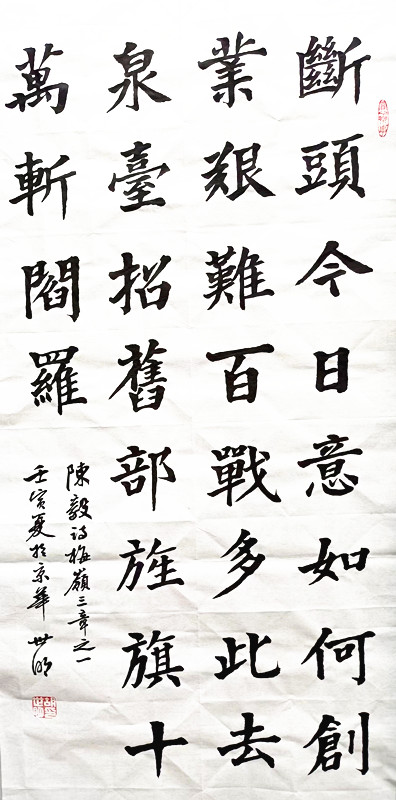 斷頭今日意如何創
業艱難百戰多此去
泉臺招舊部旌旗十
萬斬閻羅
陳毅诗梅嶺三章之一
壬寅夏於京華 世明